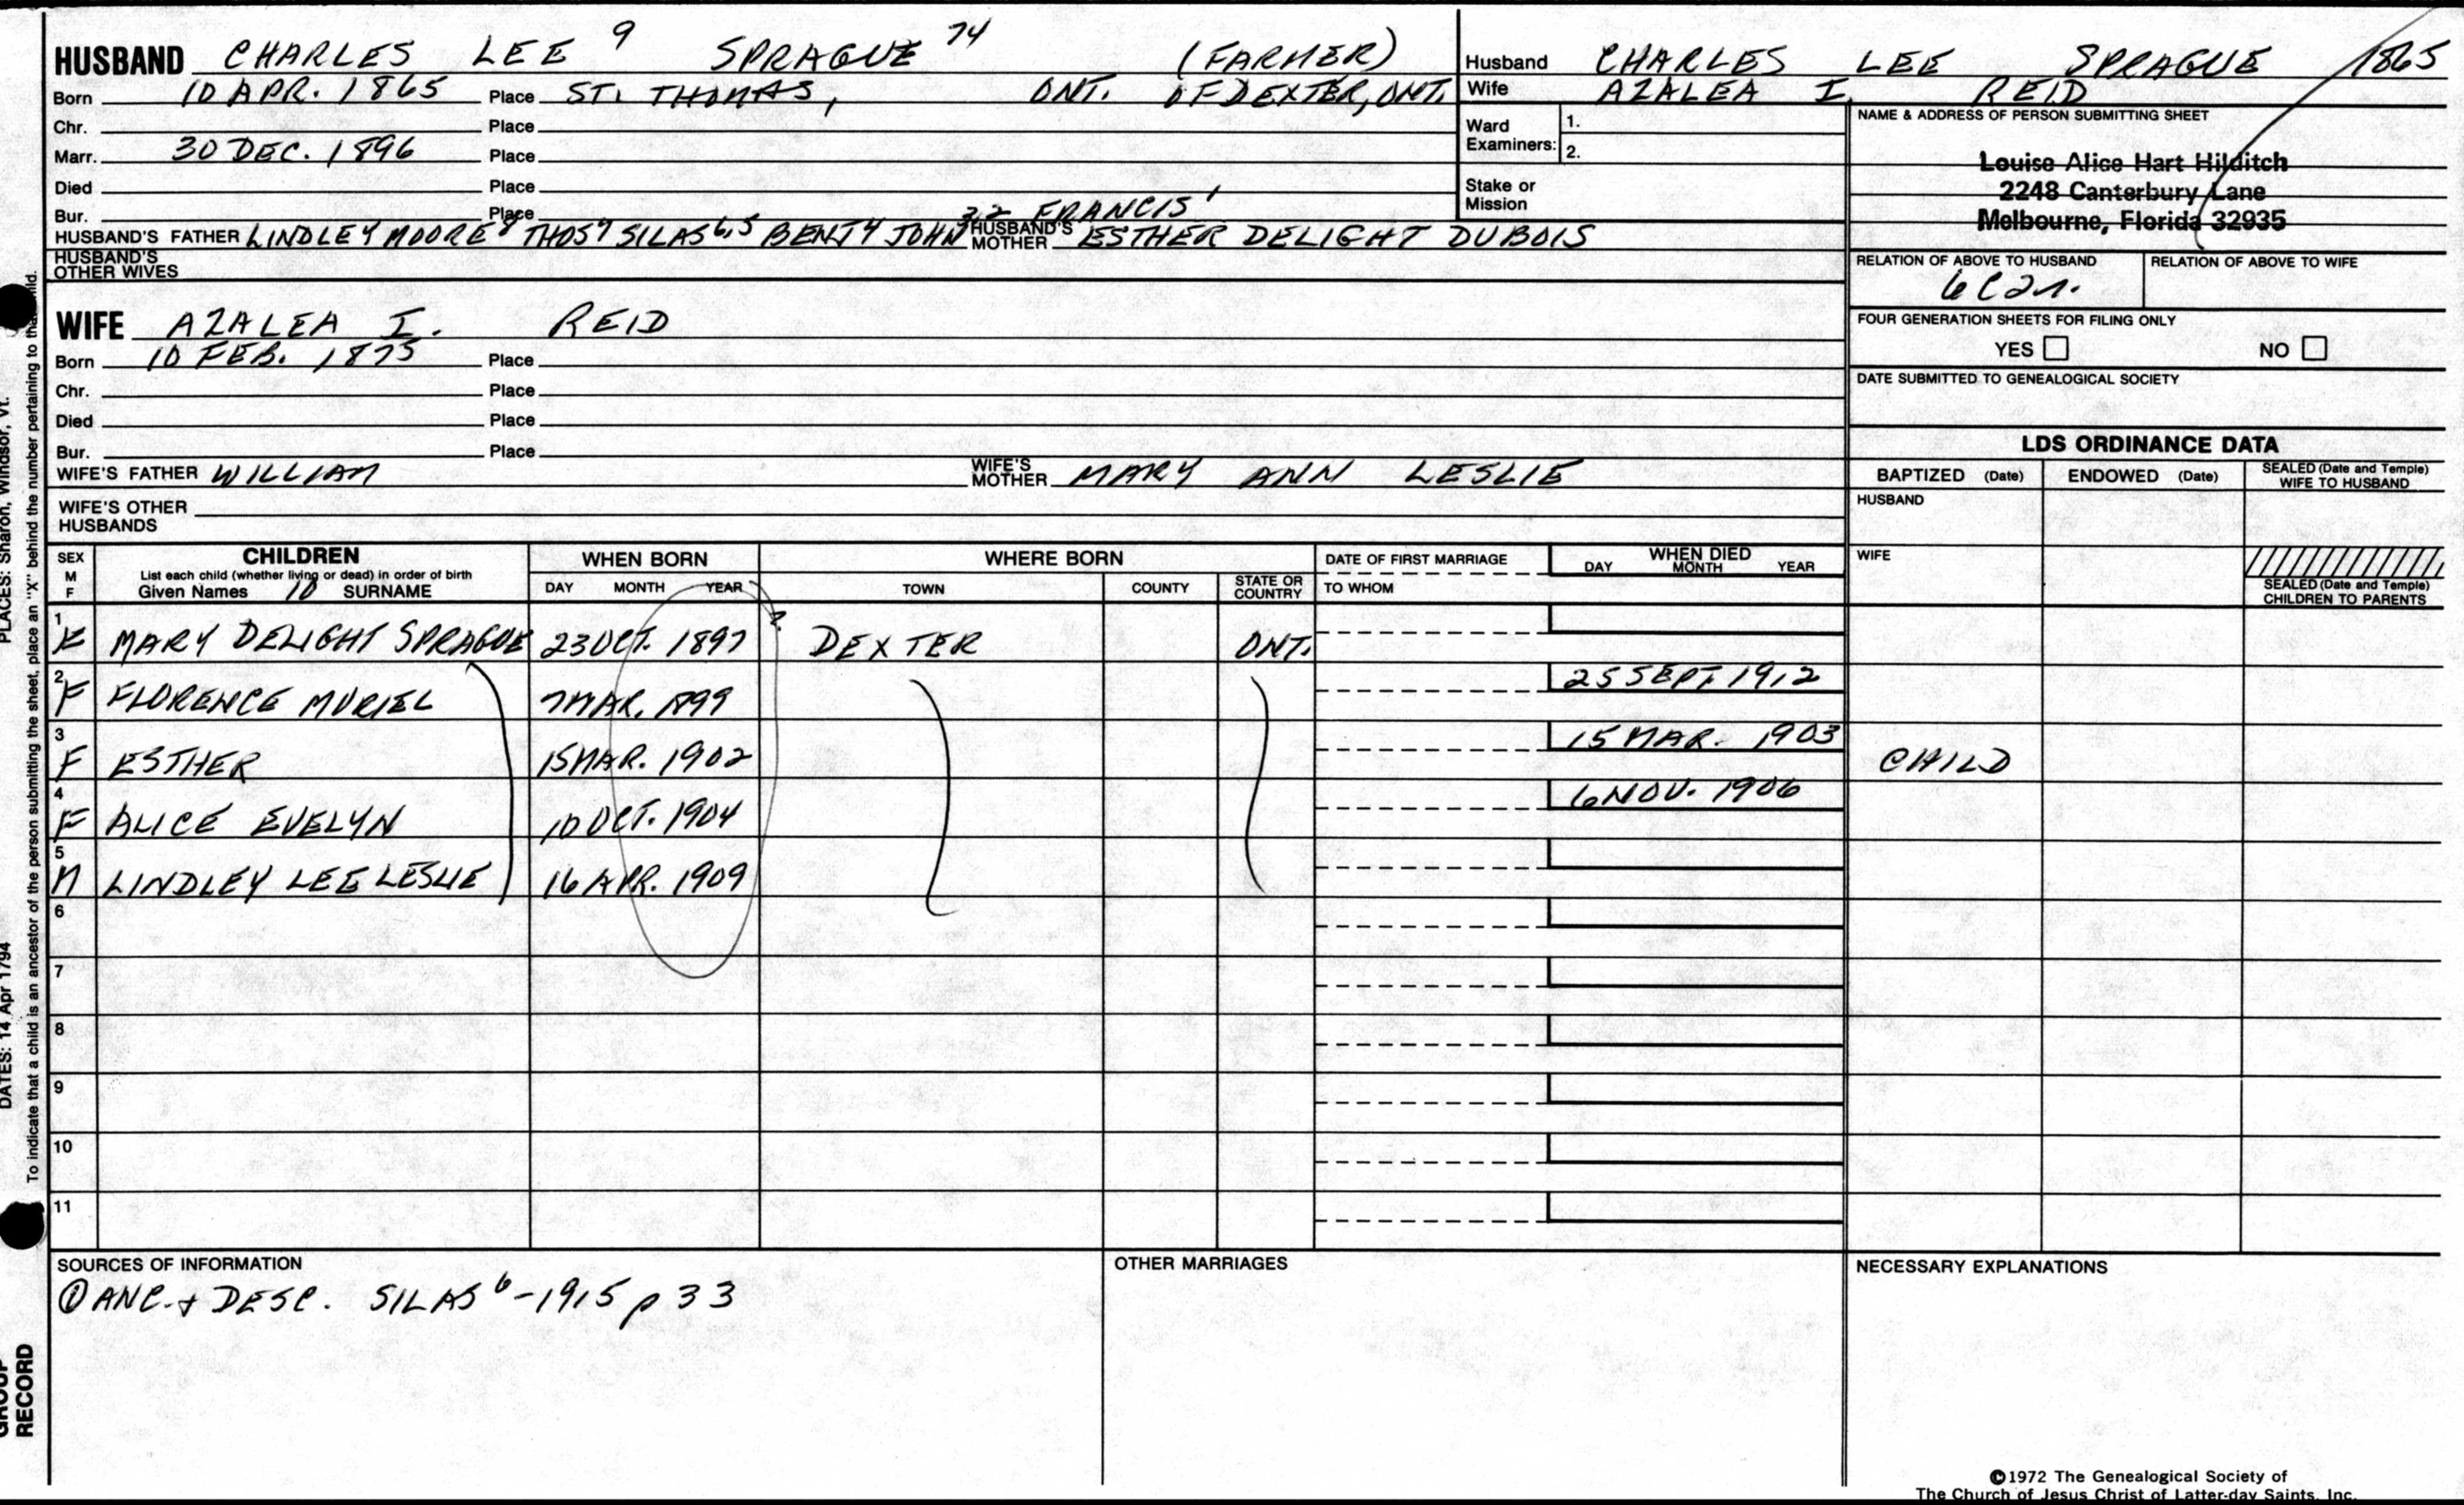 HUSBAND CHARLES LEE 9 SPRAGUE 74 (FARMER)
Born 10 APR. 1865 Place ST. THOMAS, ONT. OF DEXTER, ONT.
Chr. Place
Marr. 30 DEC. 1896 Place
Died Place
Bur. Place
HUSBAND'S FATHER LINDLEY MOORE 8 THOS 7 SILAS 6,5 BENJ 4 JOHN 3,2 FRANCIS 1 HUSBAND'S MOTHER ESTHER DELIGHT DUBOIS
HUSBAND'S OTHER WIVES
Husband CHARLES LEE SPRAGUE 1865
Wife AZALEA I. REID
Ward Examiners: 1.
2.
Stake or Mission
NAME & ADDRESS OF PERSON SUBMITTING SHEET
Louise Alice Hart Hilditch
2248 Canterbury Lane
Melbourne, Florida 32935
RELATION OF ABOVE TO HUSBAND RELATION OF ABOVE TO WIFE
6C2r.
FOUR GENERATION SHEETS FOR FILING ONLY
YES NO
DATE SUBMITTED TO GENEALOGICAL SOCIETY
WIFE AZALEA I. REID
Born 10 FEB. 1875 Place
Chr. Place
Died Place
Bur. Place
WIFE'S FATHER WILLIAM WIFE'S MOTHER MARY ANN LESLIE
WIFE'S OTHER HUSBANDS
LDS ORDINANCE DATA
BAPTIZED (Date) ENDOWED (Date) SEALED (Date and Temple) WIFE TO HUSBAND
HUSBAND
WIFE
SEALED (Date and Temple) CHILDREN TO PARENTS
SEX M F CHILDREN WHEN BORN WHERE BORN DATE OF FIRST MARRIAGE WHEN DIED
List each child (whether living or dead) in order of birth
Given Names 10 SURNAME DAY MONTH YEAR TOWN COUNTY STATE OR COUNTRY TO WHOM DAY MONTH YEAR
1 F MARY DELIGHT SPRAGUE 23 OCT. 1897 ? DEXTER ONT.
2 F FLORENCE MURIEL 7 MAR. 1899 25 SEPT. 1912
3 F ESTHER 15 MAR. 1902 15 MAR. 1903 CHILD
4 F ALICE EVELYN 10 OCT. 1904 6 NOV. 1906
5 M LINDLEY LEE LESLIE 16 APR. 1909
6
7
8
9
10
11
SOURCES OF INFORMATION OTHER MARRIAGES NECESSARY EXPLANATIONS
① ANC. + DESC. SILAS 6 - 1915 p 33
©1972 The Genealogical Society of
The Church of Jesus Christ of Latter-day Saints, Inc.
PLACES: Sharon, Windsor, Vt.
DATES: 14 Apr 1794
To indicate that a child is an ancestor of the person submitting the sheet, place an "X" behind the number pertaining to that child.
GROUP
RECORD